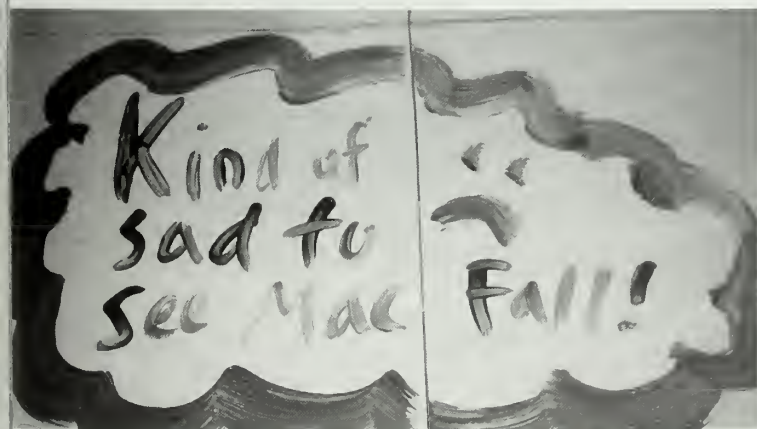 Kind of
sad to
see Mac Fall!